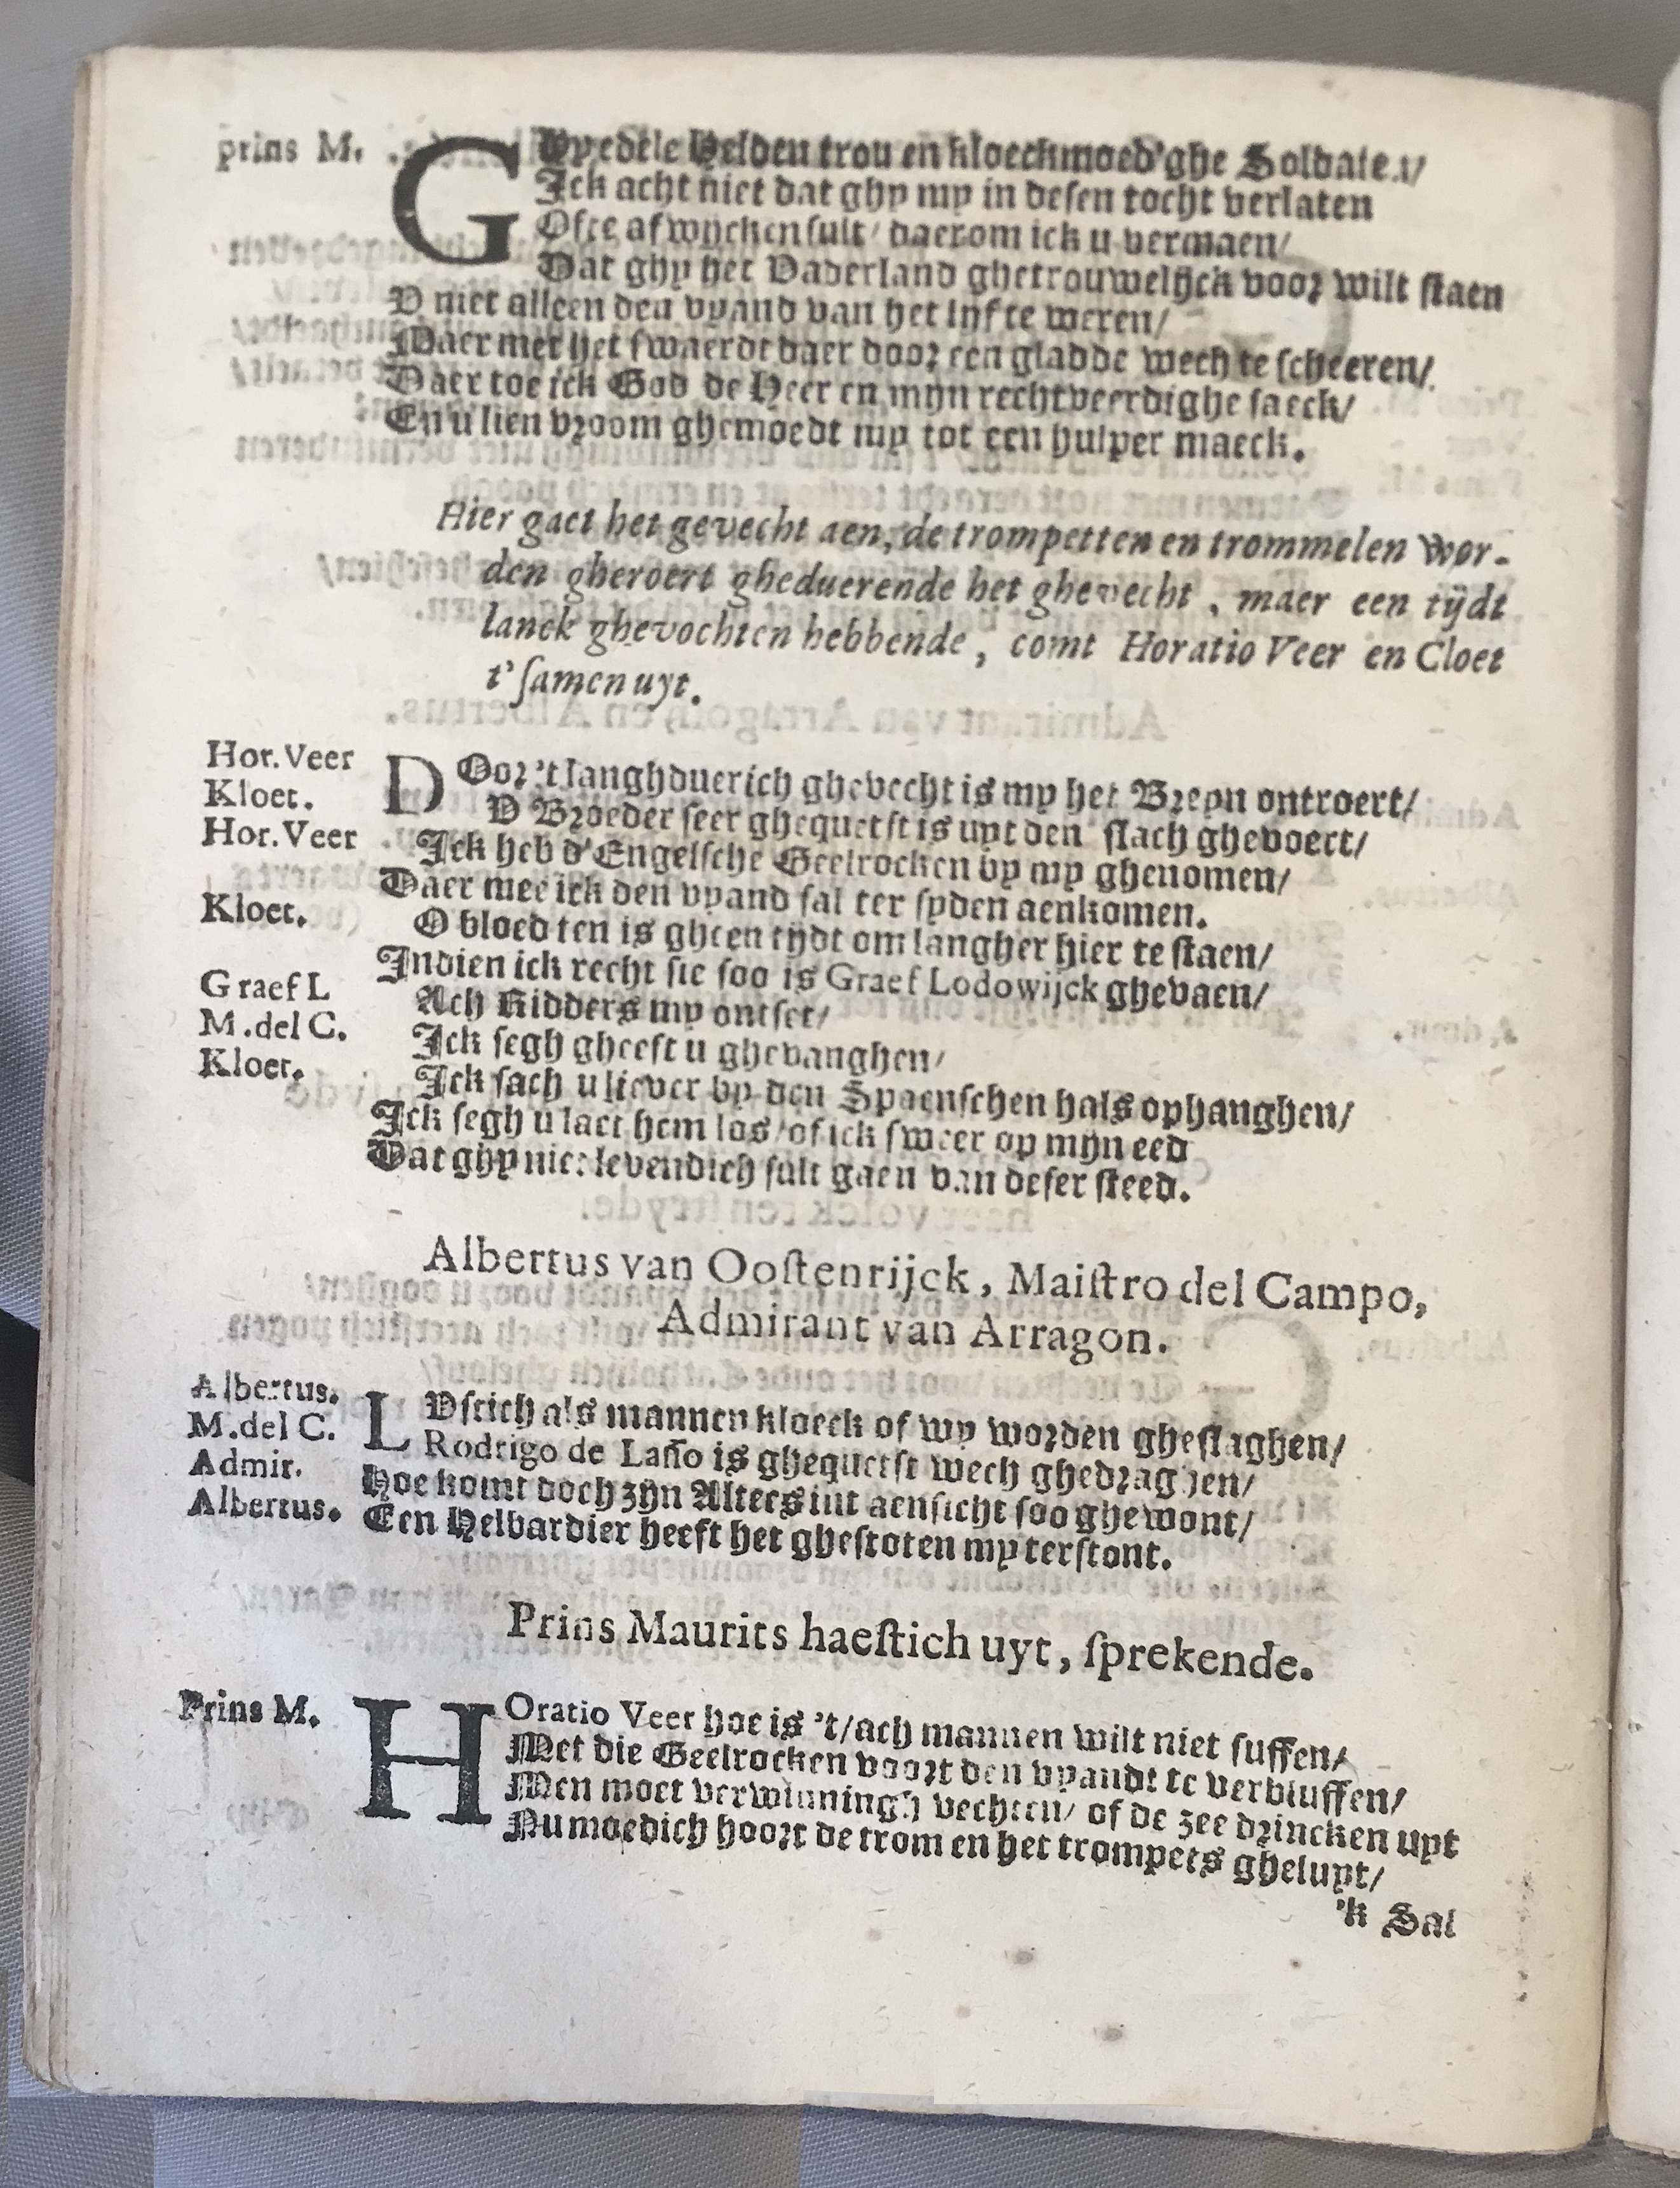 prins M. GHy edele Helden trou en kloeckmoed'ghe Soldaten/
Ick acht niet dat ghy my in desen tocht verlaten
Ofte afwycken sult/ daerom ick u vermaen/
Dat ghy het Vaderland ghetrouwelijck voor wilt staen
O niet alleen den vyand van het lyf te weren/
Maer met het swaerdt daer door een gladde wech te scheeren/
Daer toe ick God de Heer en mijn rechtveerdighe saeck/
En u lien vroom ghemoedt my tot een hulper maeck.
Hier gaet het gevecht aen, de trompetten en trommelen wor-
den gheroert gheduerende het ghevecht, maer een tijdt
lanck ghevochten hebbende, comt Horatio Veer en Cloet
t'samen uyt.
Hor. Veer DOor 't langhduerich ghevecht is my het Breyn ontroert/
Kloet. V Broeder seer ghequetst is uyt den slach ghevoert/
Hor. Veer Ick heb d'Engelsche Geelrocken by my ghenomen/
Daer mee ick den vyand sal ter syden aenkomen.
Kloet. O bloed ten is gheen tijdt om langher hier te staen/
Indien ick recht sie soo is Graef Lodowijck ghevaen/
Graef L Ach Ridders my ontset/
M. del C. Ick segh gheeft u ghevanghen/
Kloet. Ick sach u liever by den Spaenschen hals ophanghen/
Ick segh u laet hem los/ of ick sweer op mijn eed
Dat ghy niet levendich sult gaen van deser steed.
Albertus van Oostenrijck, Maistro del Campo,
Admirant van Arragon.
Albertus. LVstich als mannen kloeck of wy worden gheslaghen/
M. del C. Rodrigo de Lasso is ghequetst wech ghedraghen/
Admir. Hoe komt doch zijn Altees int aensicht soo ghewont/
Albertus. Een Helbardier heeft het ghestoten my terstont.
Prins Maurits haestich uyt, sprekende.
Prins M. HOratio Veer hoe is 't/ ach mannen wilt niet suffen/
Met die Geelrocken voort den vyandt te verbluffen/
Men moet verwinningh vechten/ of de zee drincken uyt
Nu moedich hoort de trom en het trompets gheluyt/
'k Sal